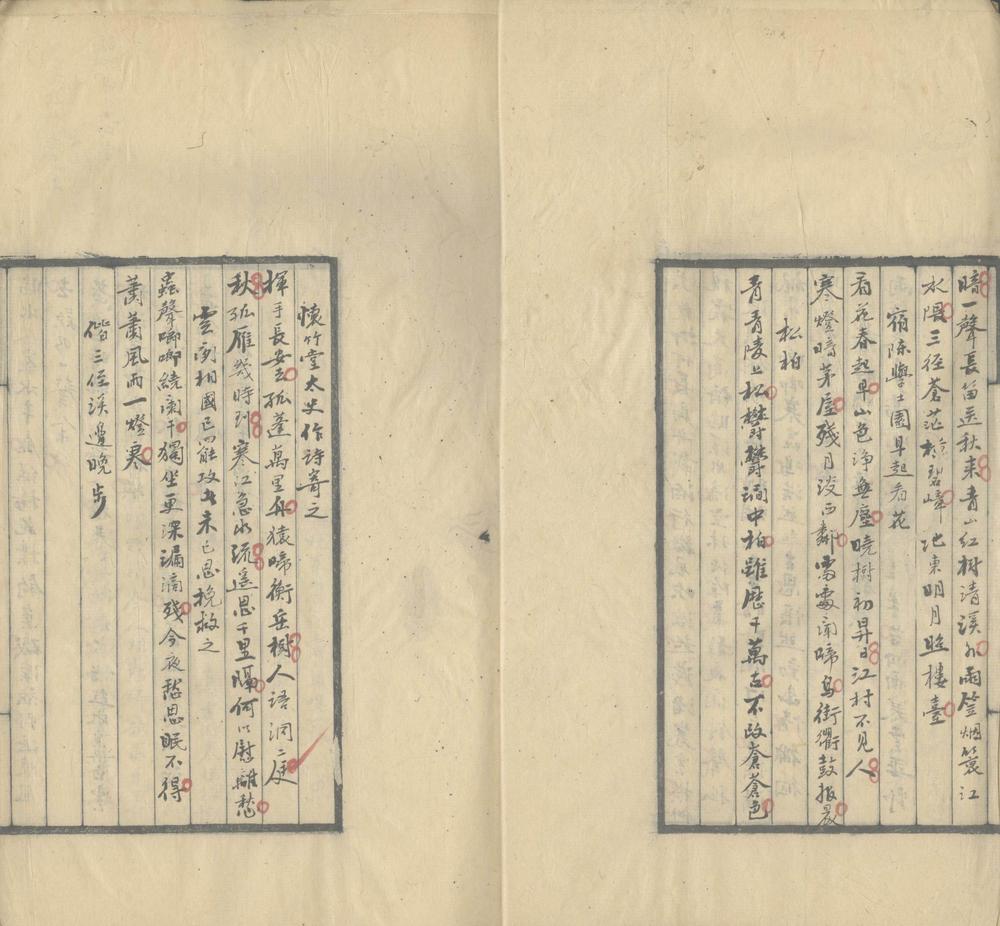 暗一聲長笛送秋來青山紅樹清溪外雨笠烟簑江
水隈三徑蒼茫於碧嶂池東明月照樓臺
宿陳學士園早起看花
看花春起早山色淨無塵曉樹初昇日江村不見人
寒燈暗茅屋殘月沒西鄰處處聞啼鳥街衢鼓報晨
松柏
青青陵上松鬱鬱澗中柏雖歷千萬古不改蒼蒼色
懷竹堂太史作詩寄之
揮手長安去孤蓬萬里舟猿啼衡岳樹人語洞庭
秋孤雁幾時到寒江急水流遥思千里隔何以慰離愁
雲間相國已罷政余未已思挽救之
蟲聲啣啣繞闌干獨坐更深漏滴殘今夜愁思眠不得
蕭蕭風雨一燈寒
偕三徑溪邊晚步